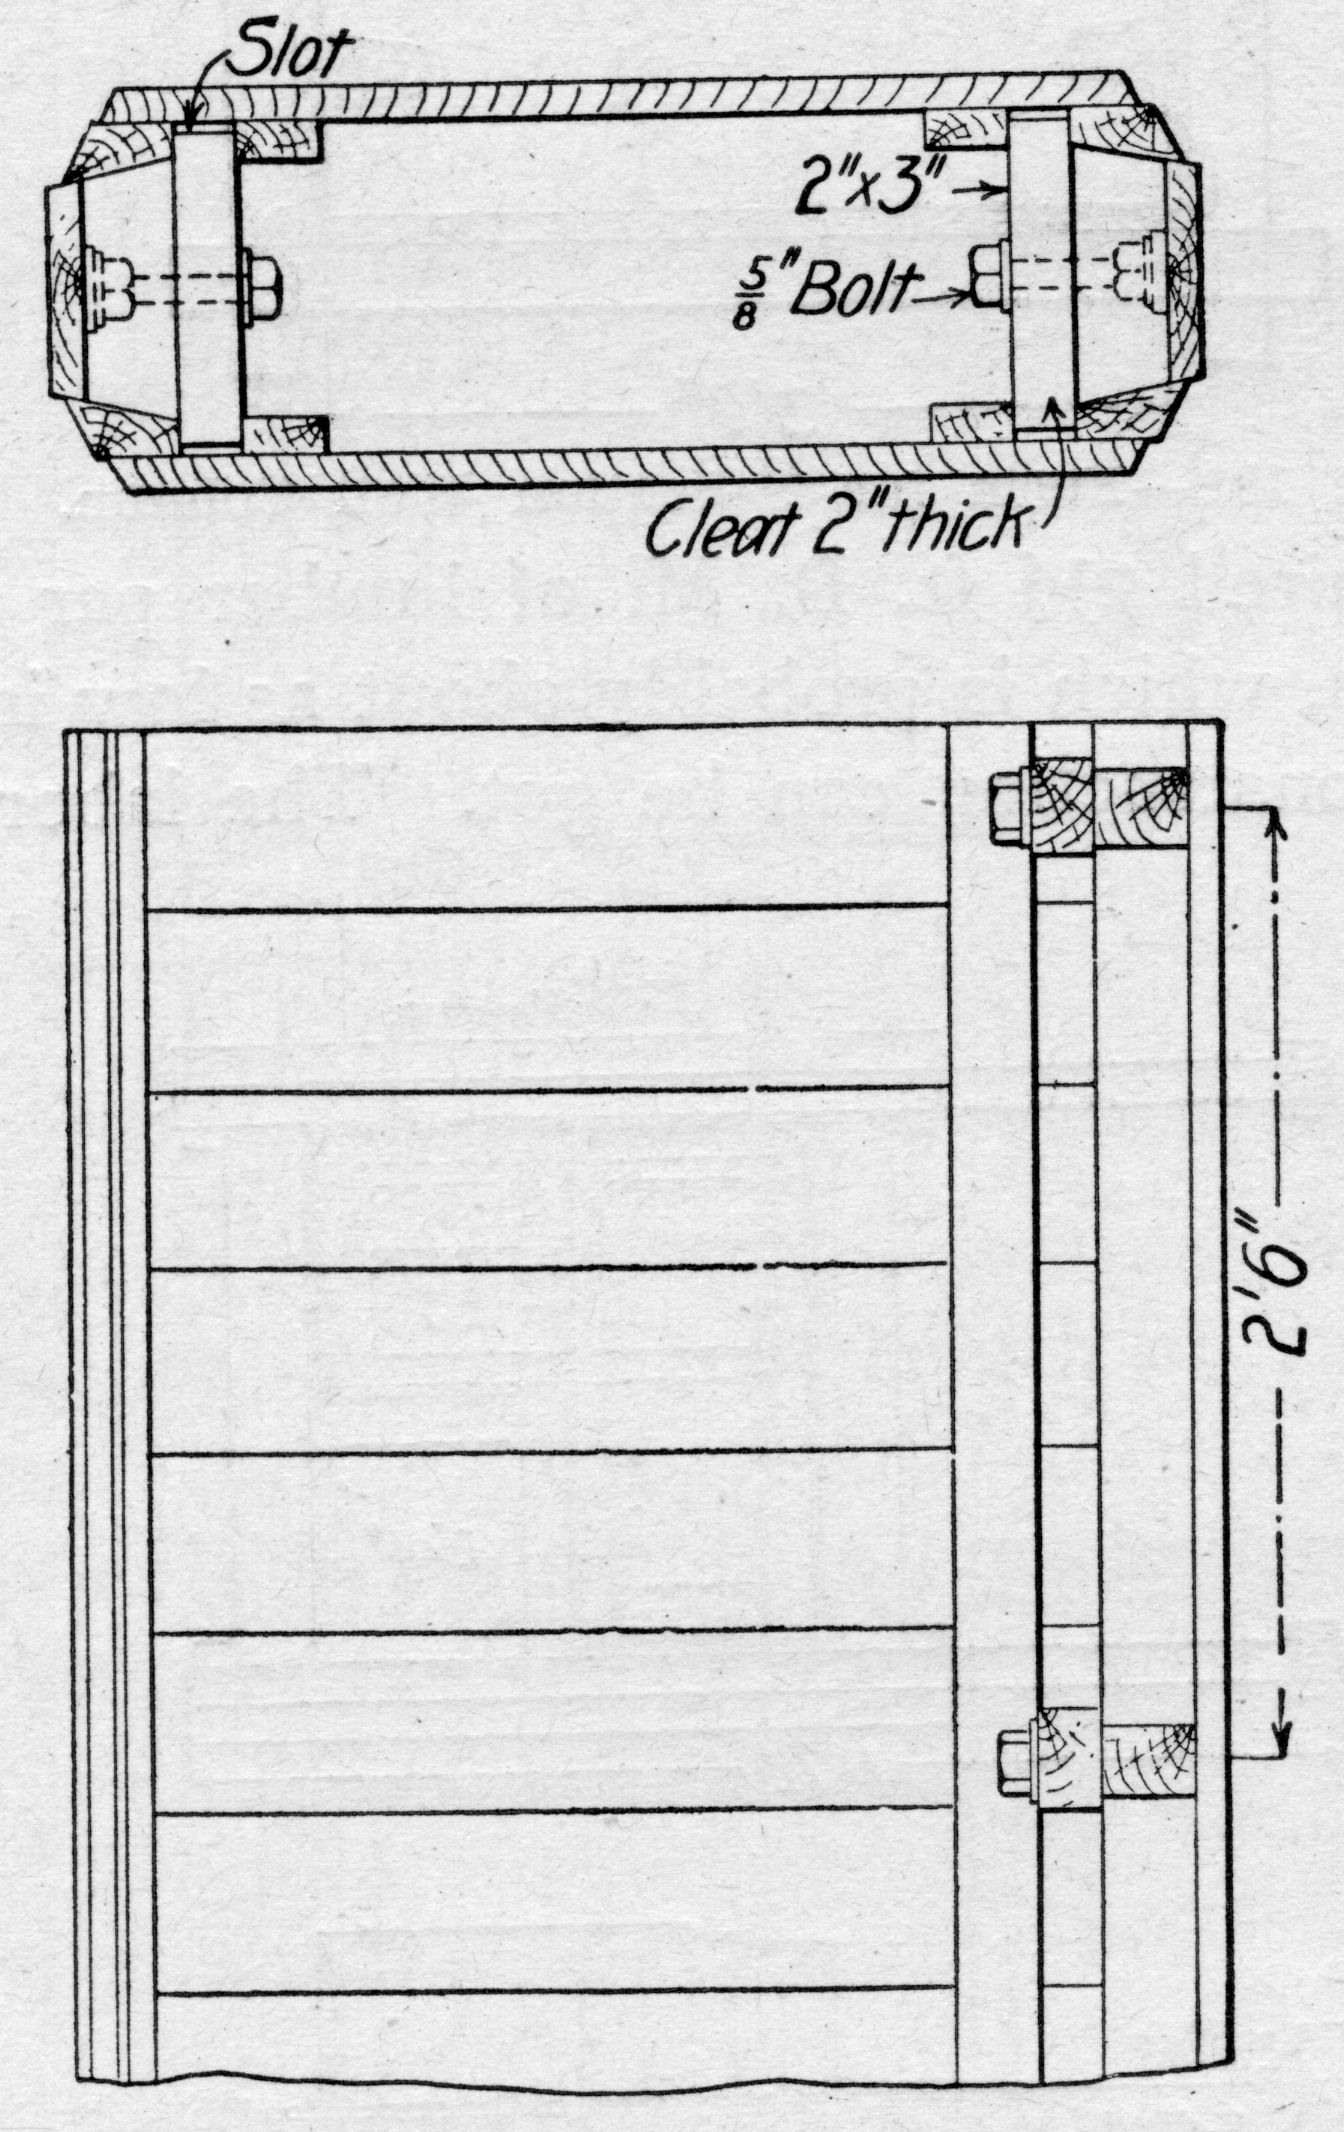 Slot
2"x3"
5/8" Bolt
Cleat 2" thick
2'6"